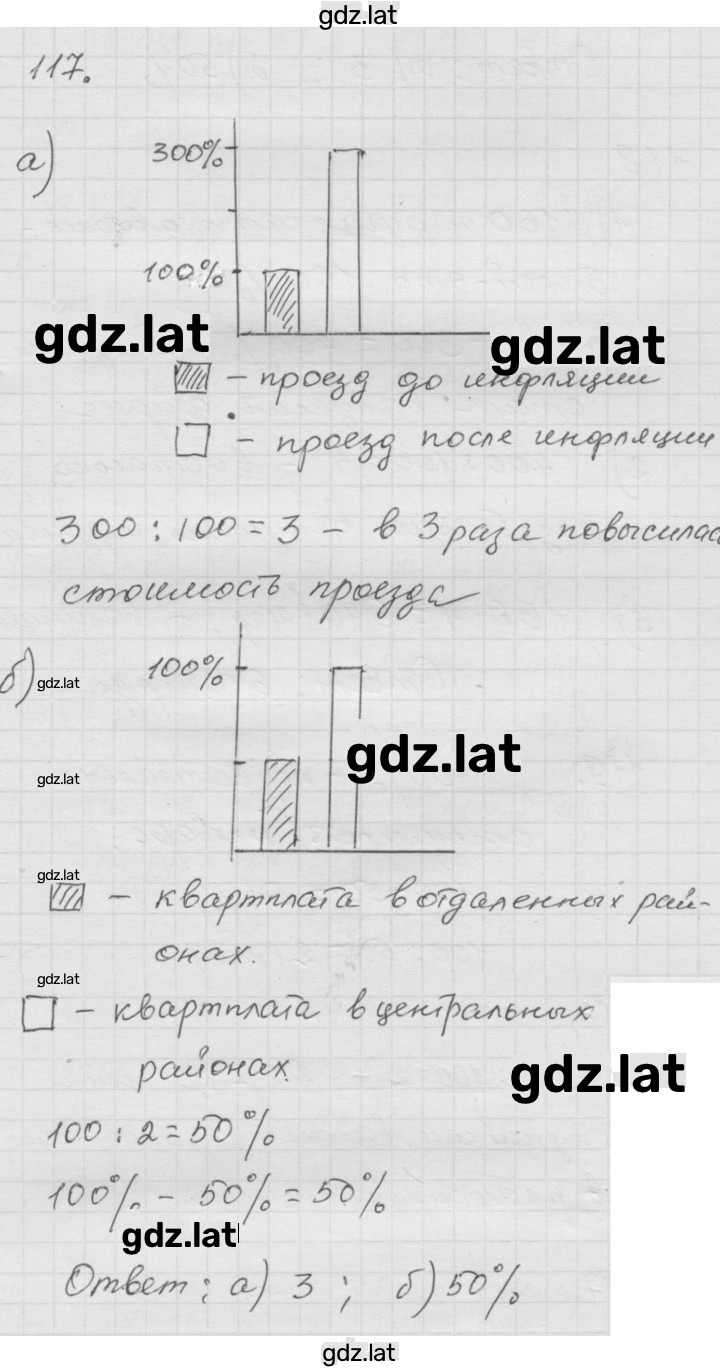 gdz.lat
117.
а)
300%
100%
gdz.lat
gdz.lat
- проезд до инфляции
- проезд после инфляции
300 : 100 = 3 - в 3 раза повысилас
стоимость проезда
б)
gdz.lat
100%
gdz.lat
gdz.lat
gdz.lat
- квартплата в отдаленных рай-
онах.
gdz.lat
- квартплата в центральных
районах.
gdz.lat
100 : 2 = 50%
100% - 50% = 50%
gdz.lat
Ответ: а) 3 ; б) 50%
gdz.lat